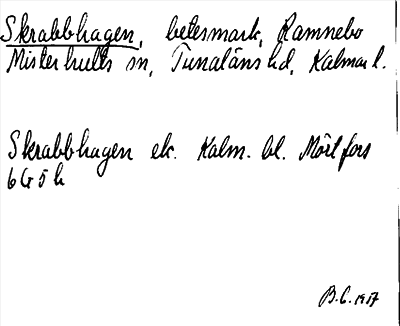 Skrabbhagen, betesmark, Ramnebo
Misterhults sn, Tunaläns hd, Kalmar l.
Skrabbhagen ek. Kalm. bl. Mörtfors
6G5h
B.C. 1957